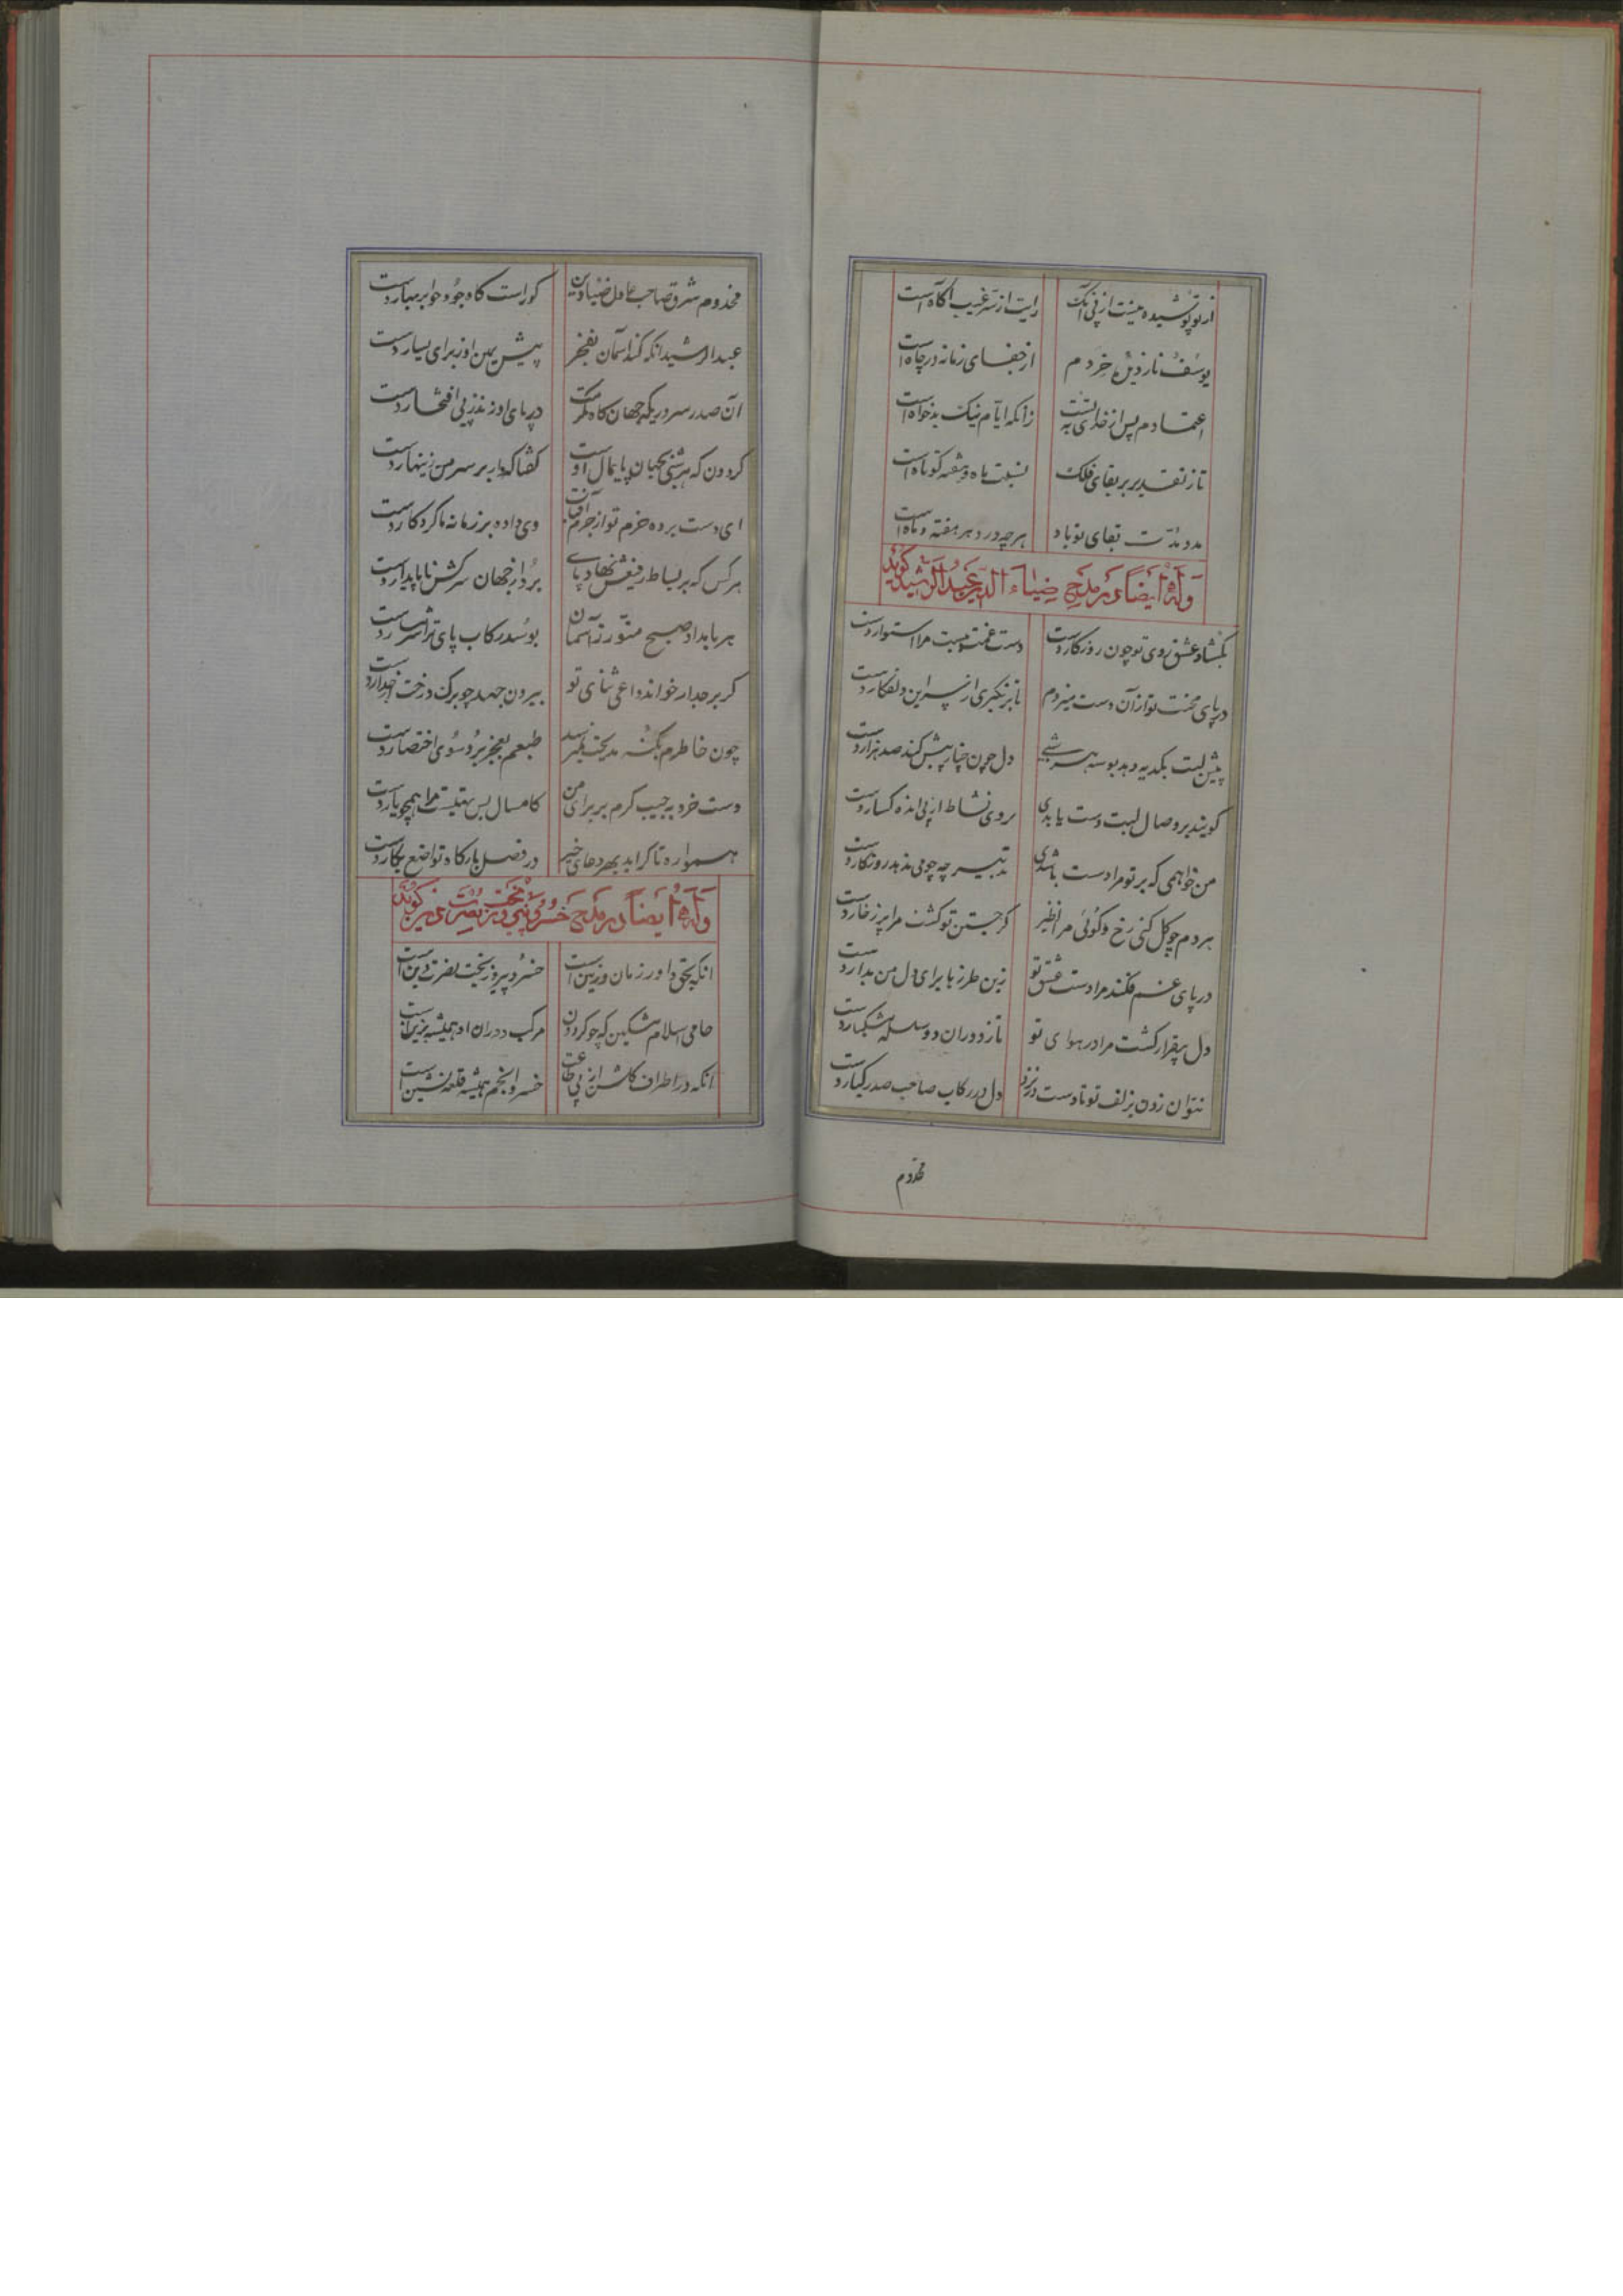 از تو پوشیده نیست از پی آنک رایت از سر غیب آگاه است
یوسف نازدیده خردم از جفای زمانه در چاه است
اعتمادم پس از خدای به تست زانکه ایام نیک بدخواه است
تا ز تقدیر بر بقای فلک نسبت ماه و هفته کوتاه است
مدد مدت بقای تو باد هرچه در دهر هفته و ماه است
وله ایضا در مدح ضیاء الدین عبدالرشید گوید
بگشاد عشق روی تو چون روزگار دست دست غمت ببست مرا استوار دست
در پای محنت تو از آن دست میزدم تا بر نگیری از سر این دلفکار دست
پیش لبت بکدیه دهد بوسه هر شبی دل چون چنار پیش کند صد هزار دست
گویند بر وصال لبت دست یابدی بر روی نشاط از پی انده گسار دست
من خواهمی که بر تو مرا دست باشدی تدبیر چه چو می ندهد روزگار دست
هر دم چو گل کنی رخ و گوئی مرا نظیر گر جستن تو گشت مرا پر ز خار دست
در پای غم فکند مرا دست عشق تو زین طرز ها برای دل من بدار دست
دل بیقرار گشت مرا در هوای تو تا زد در آن دو سلسله مشکبار دست
نتوان زدن بزلف تو تا دست در نزد دل در رکاب صاحب صدر کبار دست
مخدوم
مخدوم شرق صاحب عادل ضیاء دین کوراست گاه جود جو ابر بهار دست
عبدالرشید انکه کند آسمان بفخر پیش یمین او ز برای یسار دست
آن صدر سروری که جهان گاه مکرمت در پای او زند ز پی افتخار دست
گردون که هر شبی بجهان پایمال اوست گفتا که دار بر سر من زینهار دست
ای دست برده حزم تو از جرم آفتاب وی داده بر زمانه ترا کردگار دست
هر کس که بر بساط رفیعش نهاد پای برد از جهان سرکش ناپایدار دست
هر بامداد صبح منور ز آسمان بوسد رکاب پای ترا شرمسار دست
گر بر جدار خواند داعی ثنای تو بیرون جهد چو برگ درخت از جدار دست
چون خاطرم بکنه مدیحت نمیرسد طبعم بعجز برد سوی اختصار دست
دست خرد به جیب کرم بر برای من کامسال بس تهیست مرا همچو پار دست
همواره تا گر آید بهر دعای خیر در فضل بارگاه تواضع بکار دست
وله ایضا در مدح خسرو پیروز بخت نصرت دین گوید
انکه بحق داور زمان و زمین است خسرو پیروز بخت نصرت دین است
حامی اسلام مشکین که چو گردون مرکب دوران او همیشه بزین است
انکه در اطراف کاشن از پی طاعت خسرو انجم همیشه قلعه نشین است